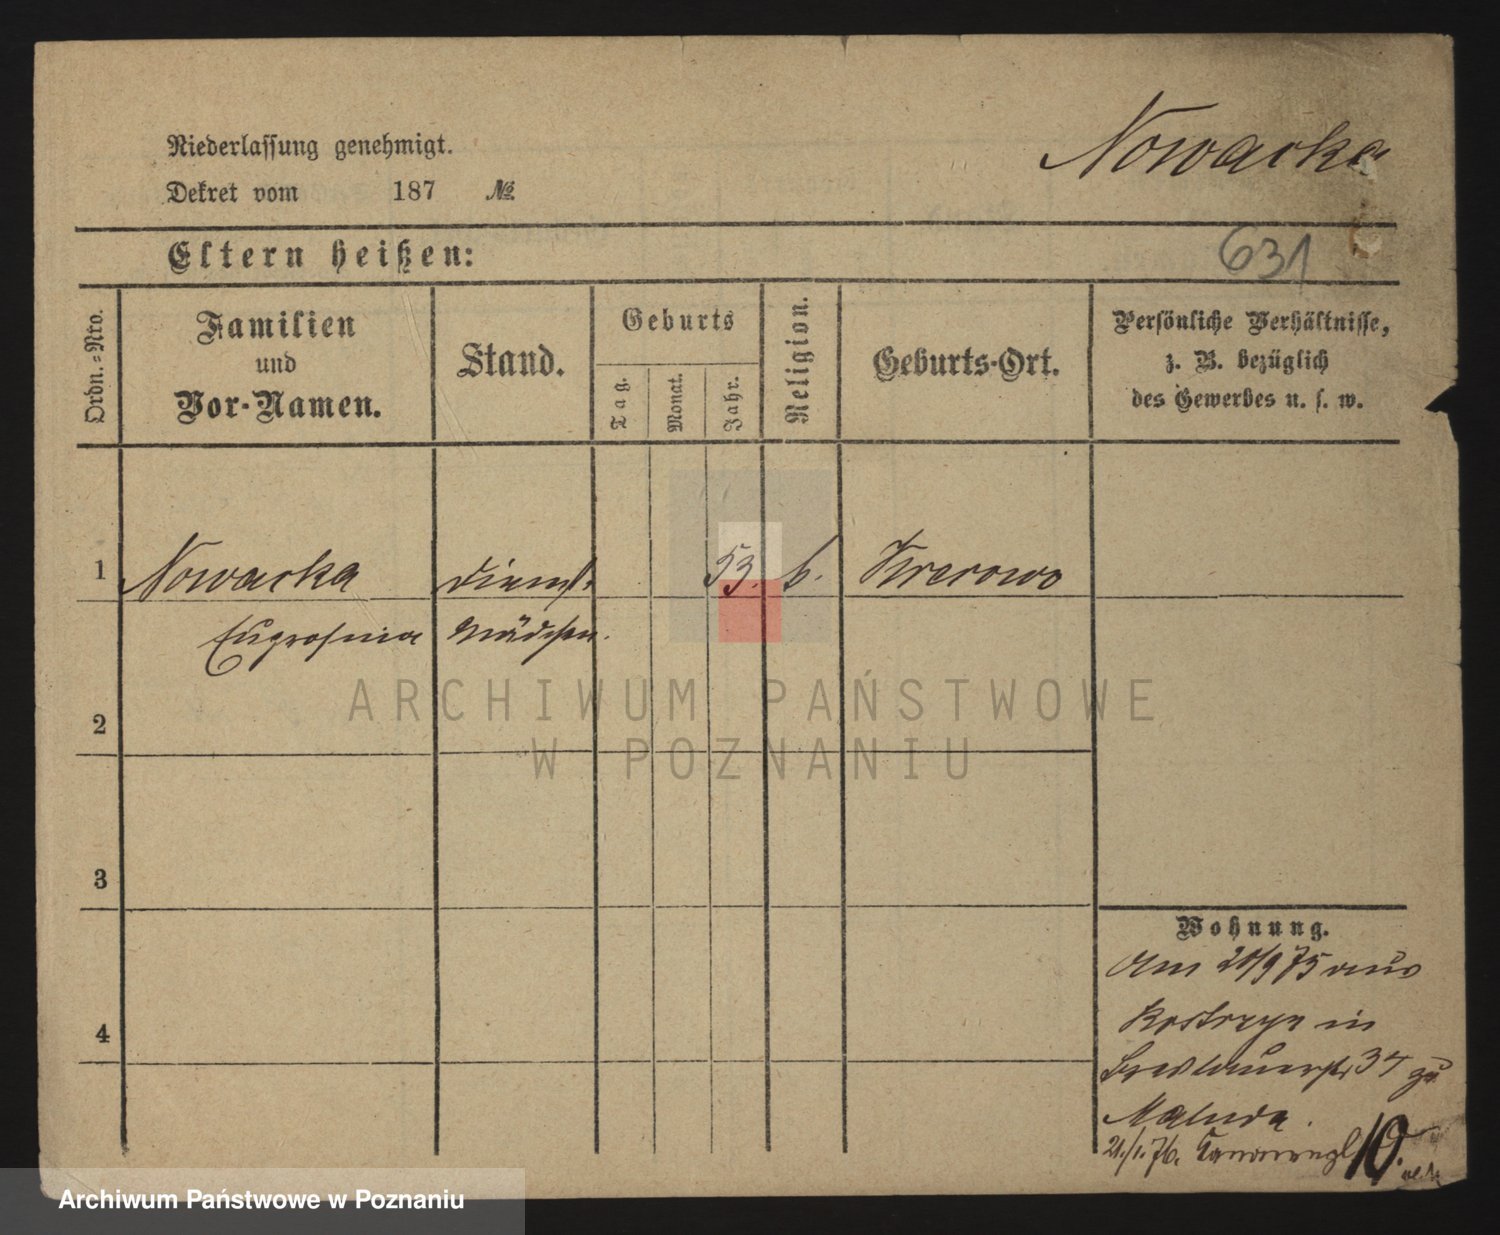 Niederlassung genehmigt.
Nowacka
Dekret vom 187 №
Eltern heißen:
631
Ordn.=Nro.
Familien
und
Vor-Namen.
Stand.
Geburts
Tag.
Monat.
Jahr.
Religion.
Geburts-Ort.
Persönliche Verhältnisse,
z. B. bezüglich
des Gewerbes u. s. w.
1 Nowacka Dienst- 53. k. Krerowo
Eugrosnia Mädchen.
ARCHIWUM PAŃSTWOWE
W POZNANIU
2
3
4
Wohnung.
Am 20/9 75 aus
Kostrzyn in
Breslauerstr 34 zu
21./1. 76. 10.
Archiwum Państwowe w Poznaniu